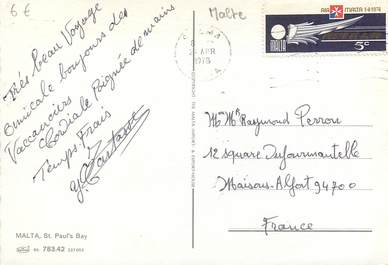 6€
Malte
Très beau Voyage
amicale bonjours des
Vacanciers
Cordiale Poignée de mains
Temps. Frais
AIR MALTA 1-4-1974
MALTA
5c
APR
1978
Mme Mr Raymond Perron
12 square Dufourmantelle
Maisons-Alfort 94700
France
MALTA, St. Paul's Bay
783.42